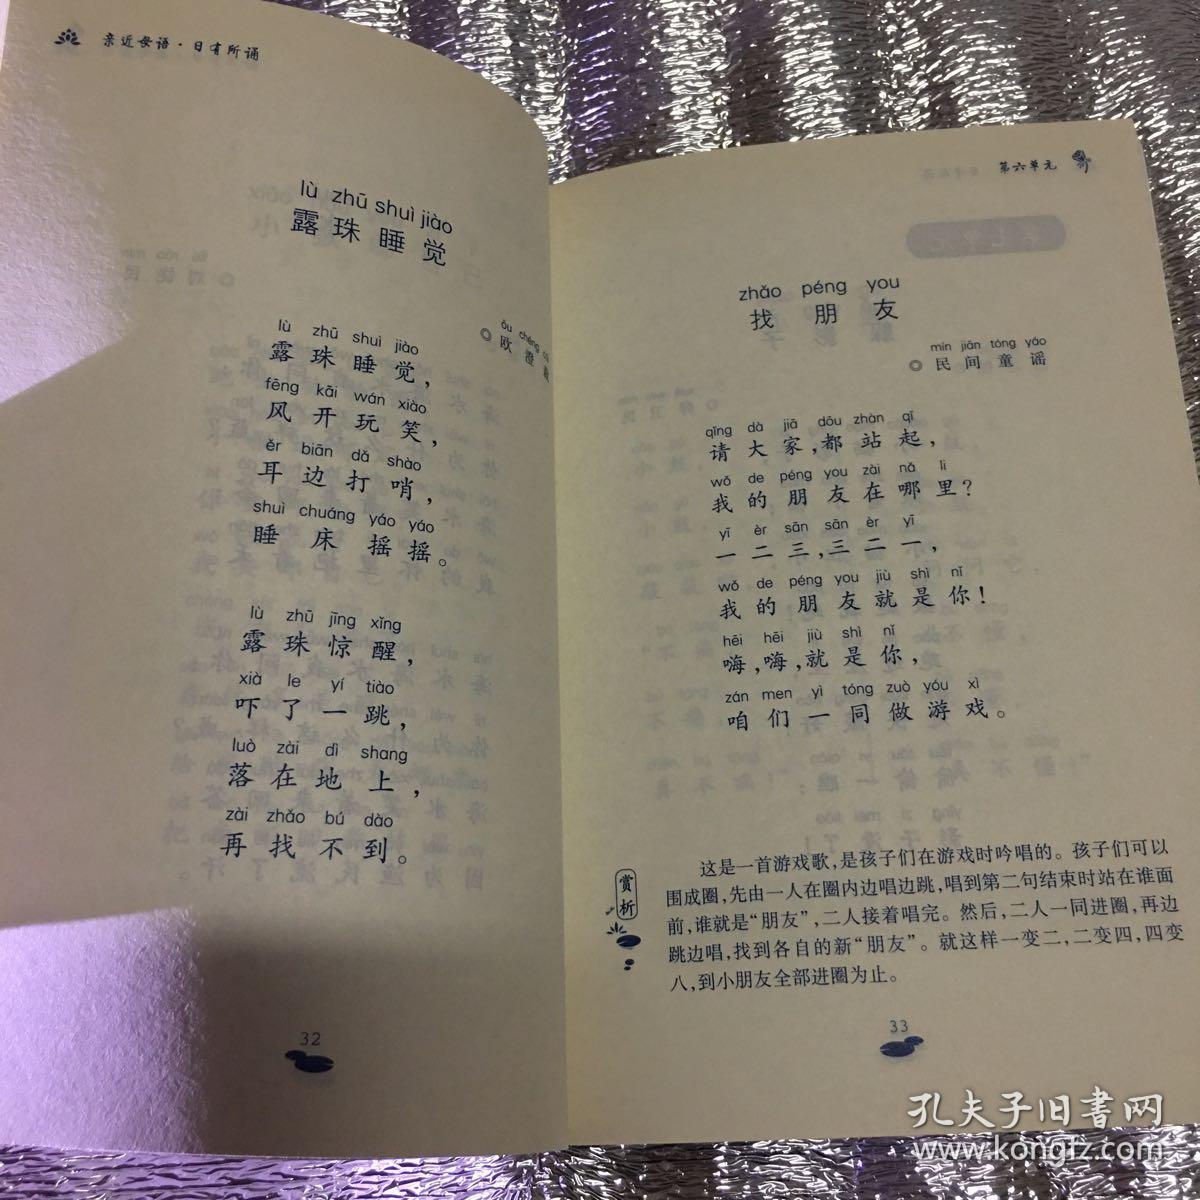 亲近母语·日有所诵
lù zhū shuì jiào
露珠睡觉
ōu chéng
◎欧澄
lù zhū shuì jiào
露珠睡觉，
fēng kāi wán xiào
风开玩笑，
ěr biān dǎ shào
耳边打哨，
shuì chuáng yáo yáo
睡床摇摇。
lù zhū jīng xǐng
露珠惊醒，
xià le yí tiào
吓了一跳，
luò zài dì shang
落在地上，
zài zhǎo bú dào
再找不到。
32
第六单元
zhǎo péng you
找朋友
mín jiān tóng yáo
◎民间童谣
qǐng dà jiā dōu zhàn qǐ
请大家，都站起，
wǒ de péng you zài nǎ li
我的朋友在哪里？
yī èr sān sān èr yī
一二三，三二一，
wǒ de péng you jiù shì nǐ
我的朋友就是你！
hēi hēi jiù shì nǐ
嗨，嗨，就是你，
zán men yì tóng zuò yóu xì
咱们一同做游戏。
赏析
这是一首游戏歌，是孩子们在游戏时吟唱的。孩子们可以
围成圈，先由一人在圈内边唱边跳，唱到第二句结束时站在谁面
前，谁就是“朋友”，二人接着唱完。然后，二人一同进圈，再边
跳边唱，找到各自的新“朋友”。就这样一变二，二变四，四变
八，到小朋友全部进圈为止。
33
孔夫子旧书网
www.kongfz.com